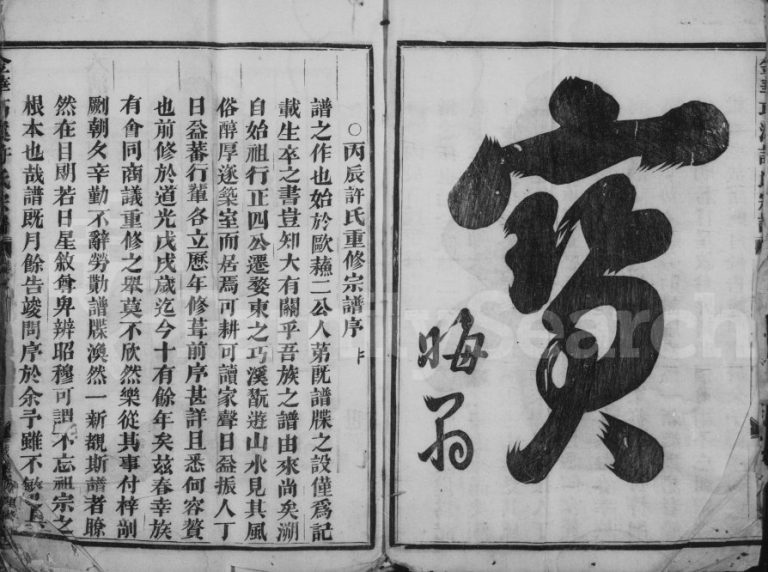 寶
晦翁
○丙辰許氏重修宗譜序
譜之作也始於歐蘇二公人第旣譜牒之設僅爲記
載生卒之書豈知大有關乎吾族之譜由來尚矣溯
自始祖行正四公遷婺東之巧溪翫遊山水見其風
俗醇厚遂築室而居焉可耕可讀家聲日益振人丁
日益蕃行輩各立歷年修葺前序甚詳且悉何容贅
也前修於道光戊戌歲迄今十有餘年矣玆春幸族
有會同商議重修之舉莫不欣然樂從其事付梓剞
劂朝夕辛勤不辭勞勩譜牒渙然一新覩斯譜者瞭
然在目朗若日星敘尊卑辨昭穆可謂不忘祖宗之
根本也哉譜旣月餘告竣問序於余予雖不敏
FamilySearch